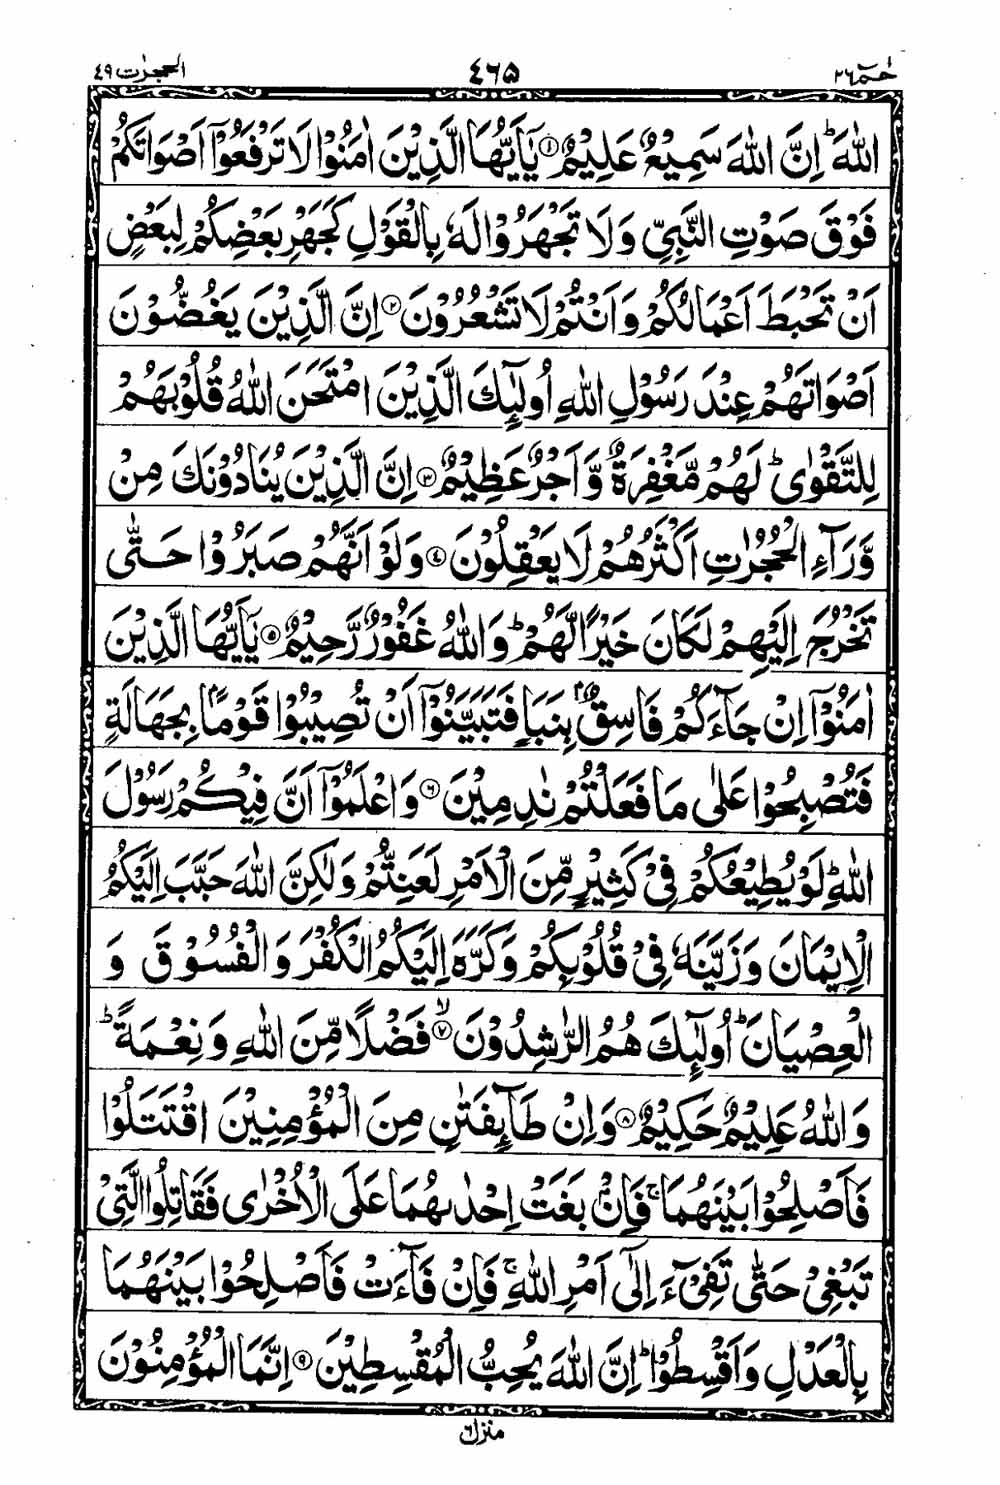 حٰمٓ ۲۶ ۴۶۵ الحجرٰت ۴۹
اللّٰهَ ؕ اِنَّ اللّٰهَ سَمِيْعٌ عَلِيْمٌ ۝۱ يٰۤاَيُّهَا الَّذِيْنَ اٰمَنُوْا لَا تَرْفَعُوْۤا اَصْوَاتَكُمْ
فَوْقَ صَوْتِ النَّبِيِّ وَلَا تَجْهَرُوْا لَهٗ بِالْقَوْلِ كَجَهْرِ بَعْضِكُمْ لِبَعْضٍ
اَنْ تَحْبَطَ اَعْمَالُكُمْ وَاَنْتُمْ لَا تَشْعُرُوْنَ ۝۲ اِنَّ الَّذِيْنَ يَغُضُّوْنَ
اَصْوَاتَهُمْ عِنْدَ رَسُوْلِ اللّٰهِ اُولٰٓئِكَ الَّذِيْنَ امْتَحَنَ اللّٰهُ قُلُوْبَهُمْ
لِلتَّقْوٰى ؕ لَهُمْ مَّغْفِرَةٌ وَّاَجْرٌ عَظِيْمٌ ۝۳ اِنَّ الَّذِيْنَ يُنَادُوْنَكَ مِنْ
وَّرَآءِ الْحُجُرٰتِ اَكْثَرُهُمْ لَا يَعْقِلُوْنَ ۝۴ وَلَوْ اَنَّهُمْ صَبَرُوْا حَتّٰى
تَخْرُجَ اِلَيْهِمْ لَكَانَ خَيْرًا لَّهُمْ ؕ وَاللّٰهُ غَفُوْرٌ رَّحِيْمٌ ۝۵ يٰۤاَيُّهَا الَّذِيْنَ
اٰمَنُوْۤا اِنْ جَآءَكُمْ فَاسِقٌۢ بِنَبَاٍ فَتَبَيَّنُوْۤا اَنْ تُصِيْبُوْا قَوْمًۢا بِجَهَالَةٍ
فَتُصْبِحُوْا عَلٰى مَا فَعَلْتُمْ نٰدِمِيْنَ ۝۶ وَاعْلَمُوْۤا اَنَّ فِيْكُمْ رَسُوْلَ
اللّٰهِ ؕ لَوْ يُطِيْعُكُمْ فِيْ كَثِيْرٍ مِّنَ الْاَمْرِ لَعَنِتُّمْ وَلٰكِنَّ اللّٰهَ حَبَّبَ اِلَيْكُمُ
الْاِيْمَانَ وَزَيَّنَهٗ فِيْ قُلُوْبِكُمْ وَكَرَّهَ اِلَيْكُمُ الْكُفْرَ وَالْفُسُوْقَ وَ
الْعِصْيَانَ ؕ اُولٰٓئِكَ هُمُ الرّٰشِدُوْنَ ۙ۝۷ فَضْلًا مِّنَ اللّٰهِ وَنِعْمَةً ؕ
وَاللّٰهُ عَلِيْمٌ حَكِيْمٌ ۝۸ وَاِنْ طَآئِفَتٰنِ مِنَ الْمُؤْمِنِيْنَ اقْتَتَلُوْا
فَاَصْلِحُوْا بَيْنَهُمَا ۚ فَاِنْۢ بَغَتْ اِحْدٰىهُمَا عَلَى الْاُخْرٰى فَقَاتِلُوا الَّتِيْ
تَبْغِيْ حَتّٰى تَفِيْٓءَ اِلٰۤى اَمْرِ اللّٰهِ ۚ فَاِنْ فَآءَتْ فَاَصْلِحُوْا بَيْنَهُمَا
بِالْعَدْلِ وَاَقْسِطُوْا ؕ اِنَّ اللّٰهَ يُحِبُّ الْمُقْسِطِيْنَ ۝۹ اِنَّمَا الْمُؤْمِنُوْنَ
منزل ۶